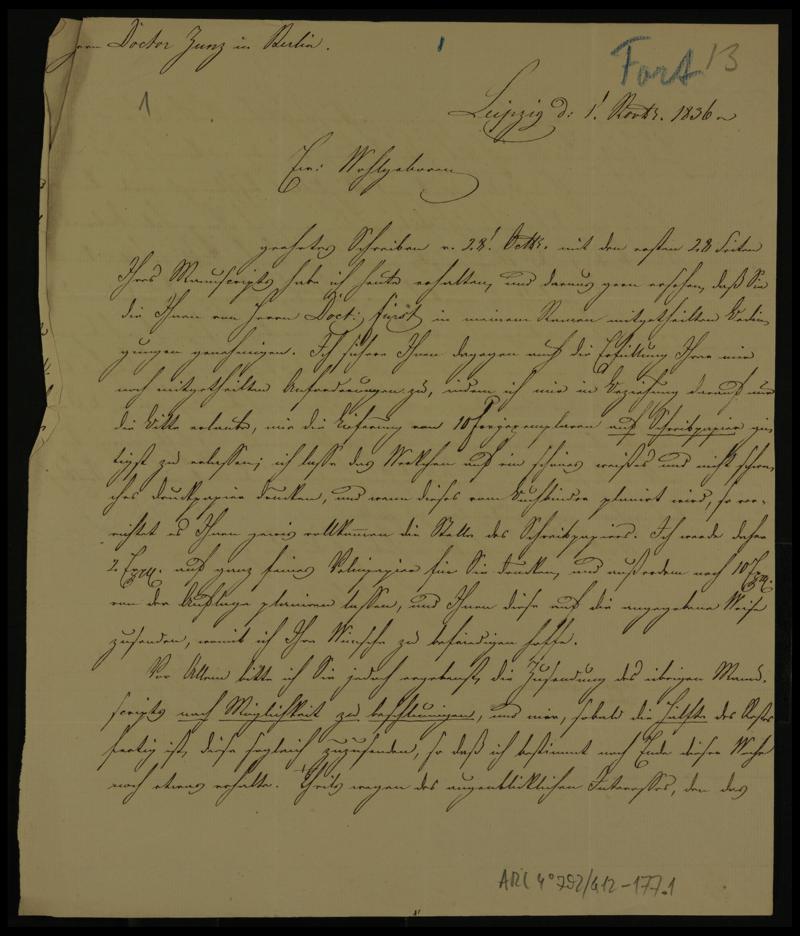 Herrn Doctor Zunz in Berlin.
Fort 13
1
Leipzig d: 1! Novbr. 1836
Ew: Wohlgeboren
geehrtes Schreiben v. 28! Octbr. mit den ersten 28 Seiten
Ihres Manuscripts habe ich heute erhalten, und daraus gern ersehen, daß Sie
die Ihnen von Herrn Doct: Fürst in meinem Namen mitgetheilten Bedin-
gungen genehmigen. Ich sichere Ihnen dagegen auch die Erfüllung Ihrer mir
noch mitgetheilten Anforderungen zu, indem ich mir in Beziehung darauf nur
die Bitte erlaube, mir die Lieferung von 10 Freiexemplaren auf Schreibpapier gü-
tigst zu erlassen; ich lasse das Werkchen auf ein schönes weißes und nicht schwa-
ches Druckpapier drucken, und wenn dieses vom Buchbinder planirt wird, so ver-
richtet es Ihnen gewis vollkommen die Stelle des Schreibpapiers. Ich werde daher
2. Expl. auf ganz feines Velinpapier für Sie drucken, und außerdem noch 10 Expl.
von der Auflage planiren lassen, und Ihnen diese auf die angegebene Weise
zusenden, womit ich Ihre Wünsche zu befriedigen hoffe.
Vor Allem bitte ich Sie jedoch ergebenst, die Zusendung des übrigen Manu-
scripts nach Möglichkeit zu beschleunigen, und mir, sobald die Hälfte des Restes
fertig ist, diese sogleich zuzusenden, so daß ich bestimmt noch Ende dieser Woche
noch etwas erhalte. Theils wegen des augenblicklichen Interesses, den das
ARC 4° 792/G12-177.1